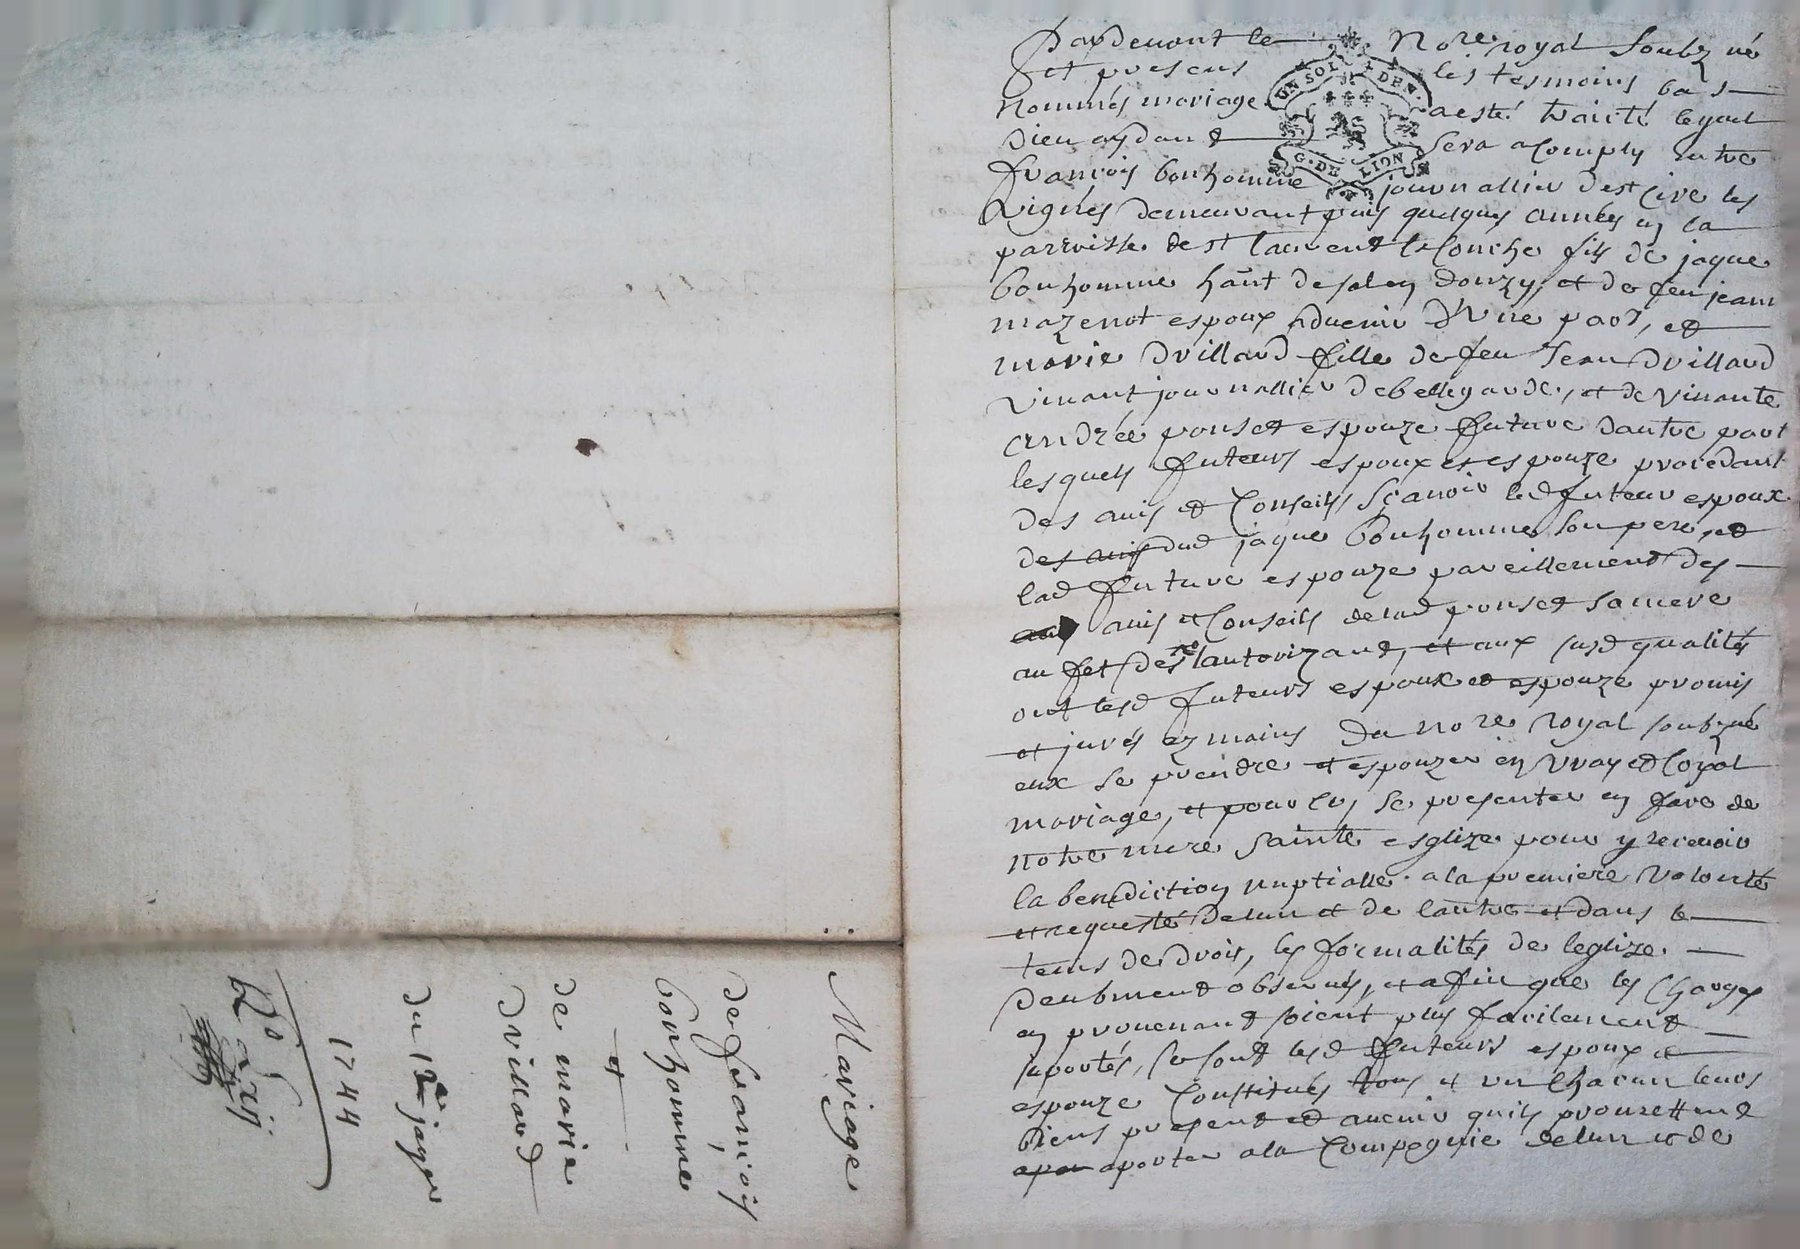 Pardevant le Nore royal soubz né
et presens les tesmoins bas
nommés mariage a esté traicté lequel
Dieu aydant sera acomply entre
françois bonhomme journallier dest cire les
vignes demeurant puis quelques années en la
parroisse de st laurent la Conche fils de jaque
bonhomme hant de salen donzy, et de feu jeanne
mazenot espoux aduenir d'Une part, et
marie Drillard fille de feu Jean Drillard
viuant journallier de bellegarde, et de viuante
andrée ponset espouze future dautre part
lesquels futeurs espoux et espouze procedant
des auis et Conseils sçauoir led futeur espoux
des auis dud jaque bonhomme son pere, et
lad future espouze pareillement des
auis et Conseils de lad ponset sa mere
au fet des res lautorizant, et aux susd qualités
ont lesd futeurs espoux et espouze promis
et jurés ez mains du nore royal soubzné
eux se prendre et espouzer en vray et loyal
mariage, et pour ley se presenter en face de
notre mere sainte esglize pour y receuoir
la benediction nuptialle a la premiere volonté
et requeste delun et de lautre et dans le
tems de droit, les formalités de leglize
deubment obseruées, et afin que les charges
en prouenant soient plus facilement
suportés, se sont lesd futeurs espoux et
espouze Constitués tous et un chacun leurs
biens present et auenir quils promettent
aporter a la Compegnie delun et de
UN SOL 4 DEN.
G. DE LION
Mariage
de françois
bonhomme
et
de marie
Drillard
du 12e janer
1744